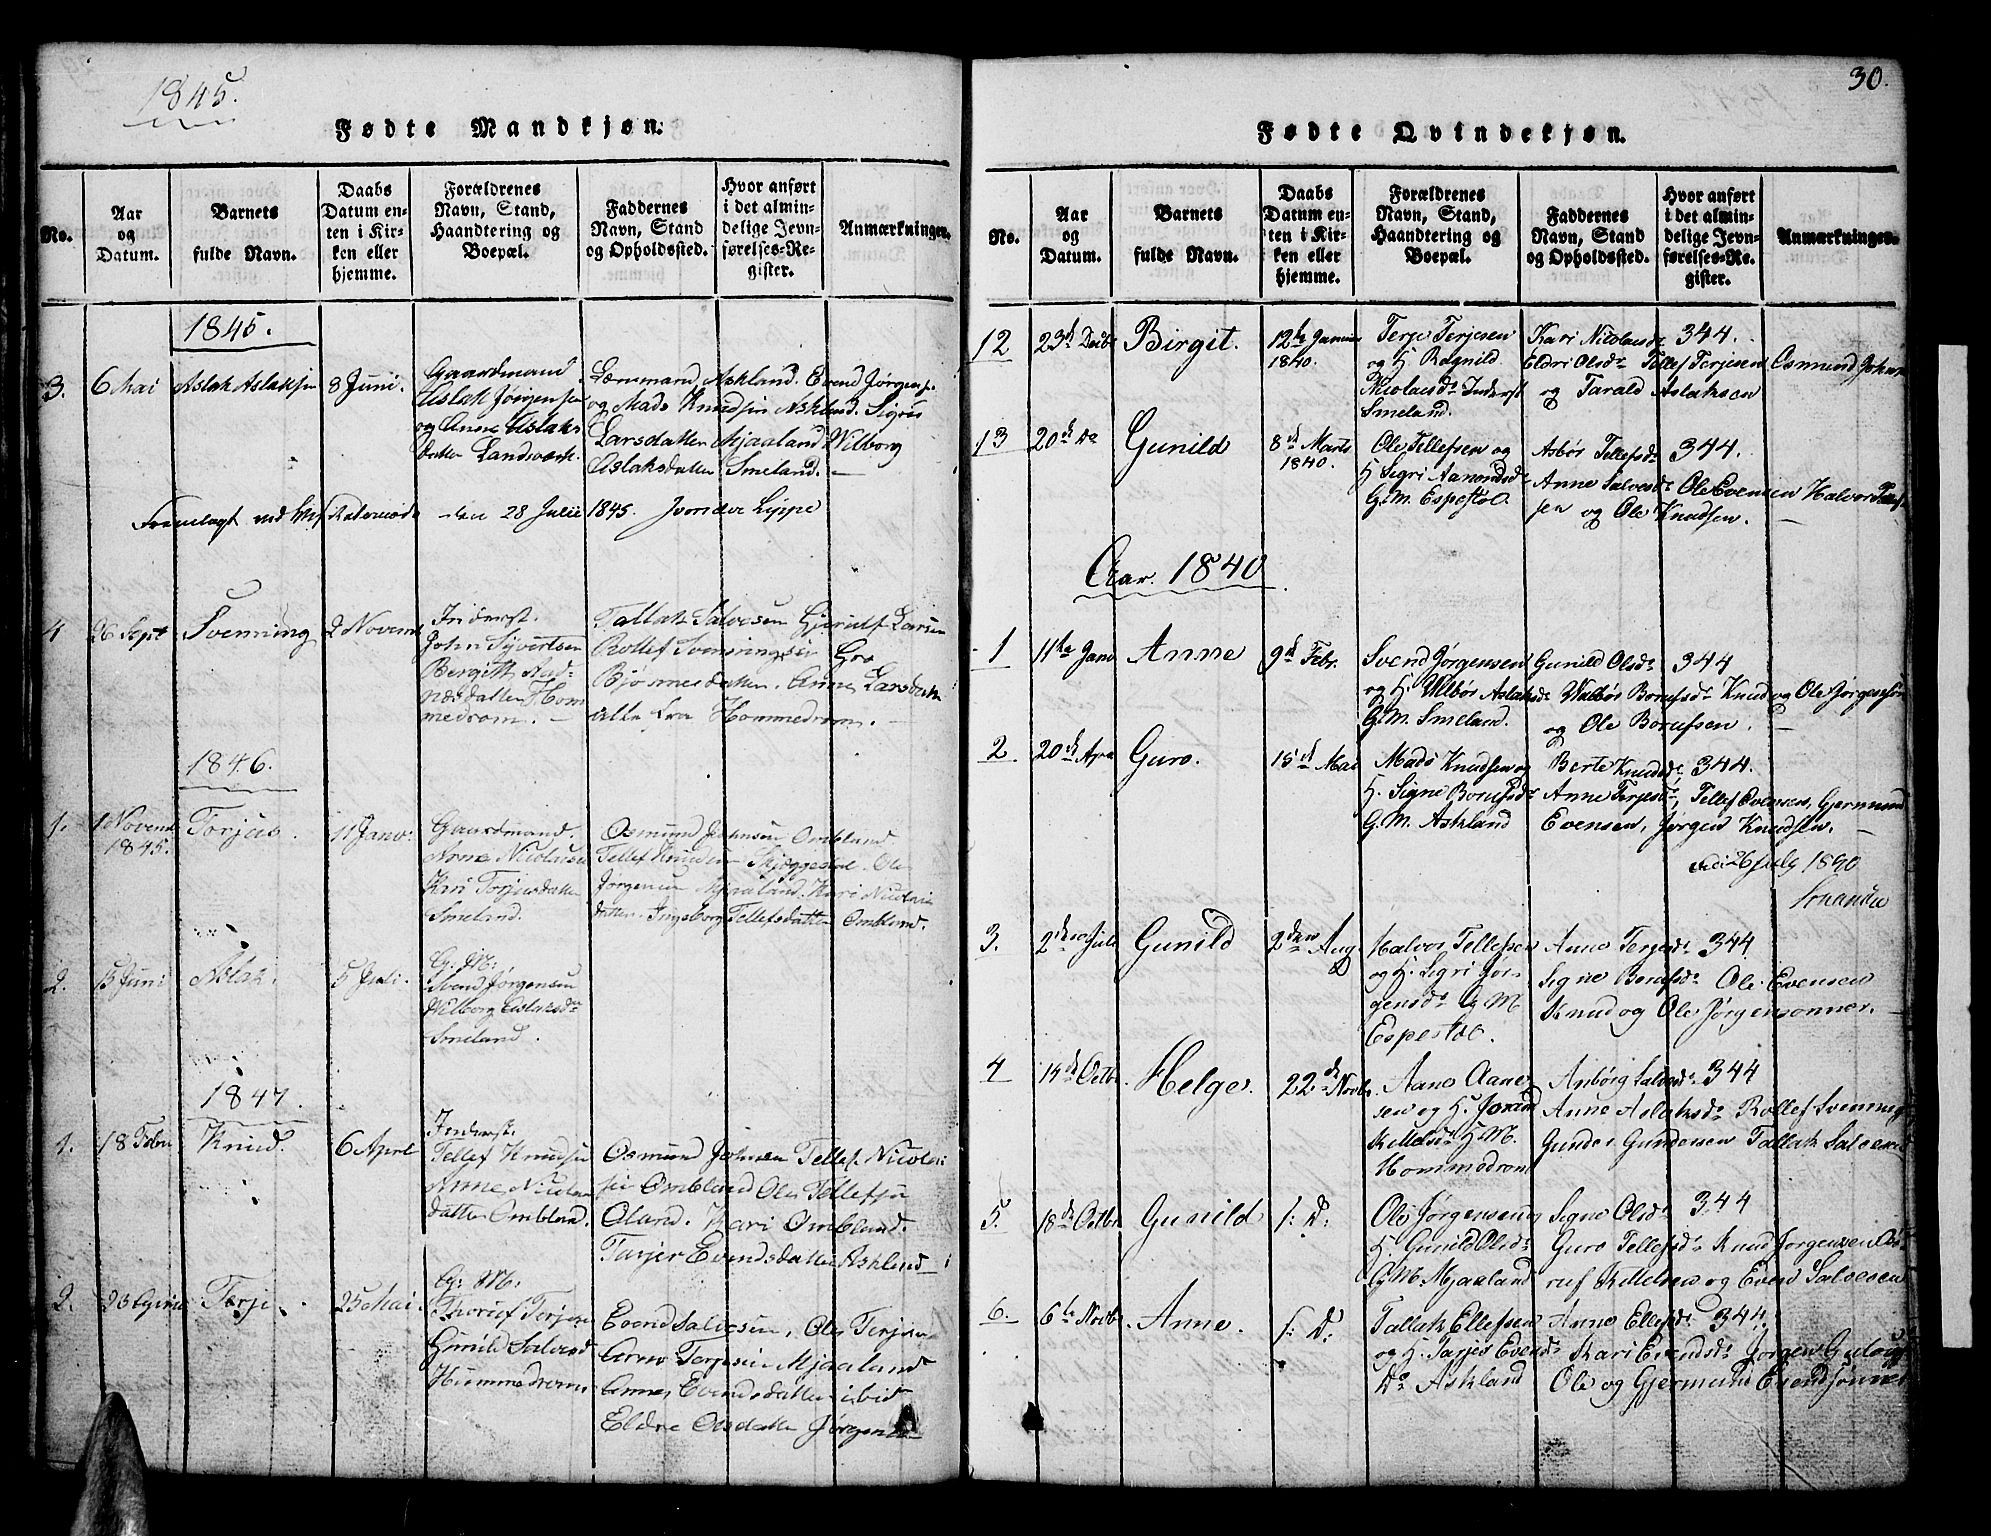 1845.
Fødte Mandkjøn.
No.
Aar
og
Datum.
Barnets
fulde Navn.
Daabs
Datum en-
ten i Kir-
ken eller
hjemme.
Forældrenes
Navn, Stand,
Haandtering og
Boepæl.
Faddernes
Navn, Stand
og Opholdssted.
Hvor anført
i det almin-
delige Jevn-
førelses-Re-
gister.
Anmærkninger.
1845.
3. 6 Mai Aslak Aslaksen 8 Juni.
Gaardmand
Aslak Jørgensen
og Anne Aslaks
datter Landsverk.
Lænsmand Askland. Evend Jørgens.
og Mads Knudsen Askland. Sigri
Larsdatter Mjaaland Wilborg
Aslaksdatter Smeland.
Fremlagt ved den 28 Julii 1845. Lippe
4 26 Sept Svenning 2 Novem
Inderst.
John Syvertsen
Bergith
datter Hom
medrom.
Tallak Salvesen Gjerulf Larsen
Rollef Svenningsen Gro
Bjørnesdatter. Anne Larsdatter
alle fra Hommedrom.
1846.
1. 1 Novem
1845.
Torjus. 11 Janv:
Gaardmand.
Arne Nicolaisen
Kari Torjersdatter
Smeland.
Osmund Johnsen Ombland
Tellef Knudsen Skjeggestøl Ole
Jørgensen Mjaaland. Kari Nicolai
datter. Ingeborg Tellefsdatter Ombland.
2. 15 Juni Aslak. 5 Juli.
G: M:
Svend Jørgensen
Wilborg Aslaksdr
Smeland.
1847.
1. 18 Febr Knud. 6 April
Inderst.
Tellef Knudsen
Anne Nicolai
datter Ombland.
Osmund Johnsen Tellef Nicolai
sen Ombland Ole Tellefsen
Oland. Kari Ombland.
Tarjer Evendsdatter Askland
2. 25 April Terje 25 Mai.
G: M:
Thoruf Torjers
Gunild Salvesd
Hummedrom.
Evend Salvesen, Ole Terjes
Arne Terjesen Mjaaland
Anne Evendsdatter ibid
Eldre Olsdatter Jørgens
30.
Fødte Qvindekjøn.
No.
Aar
og
Datum.
Barnets
fulde Navn.
Daabs
Datum en-
ten i Kir-
ken eller
hjemme.
Forældrenes
Navn, Stand,
Haandtering og
Boepæl.
Faddernes
Navn, Stand
og Opholdssted.
Hvor anført
i det almin-
delige Jevn-
førelses-Re-
gister.
Anmærkninger.
12 23d Decbr Birgit. 12te Januar
1840.
Terje Terjesen
og H. Ragnild
Nicolaisdr Inderst
Smeland.
Kari Nicolaisdr 344.
Eldri Olsdr Tellef Terjesen Osmund Johns
og Tarald Aslaksen
13 20de Do Gunild 8de Marts
1840.
Ole Tellefsen og
H. Sigri Aanondsdr
G.M. Espestøl.
Asbør Tellefsdr 344.
Anne Salvesdr Ole Evensen Halvor Tellef
sen og Ole Knudsen.
Aar. 1840
1 11te Janv Anne 9de Febr.
Svend Jørgensen
og H. Wilbør Aslaksdr
G.M. Smeland.
Gunild Olsdr 344
Walbør Borufsdr Knud og Ole Jørgensen
og Ole Borufsen.
2 20de Apr Guro. 15de Mai
Mads Knudsen og
H. Signe Borufsdr
G.M. Askland
Berte Knudsdr 344.
Anne Terjesdr, Tellef Evensen, Gjermund
Evensen, Jørgen Knudsen.
26 July 1840
3. 2den Juli Gunild 2den Aug
Halvor Tellefsen
og H. Sigri Jør-
gensdr G M
Espestøl.
Anne Terjesdr 344
Signe Borufsdr Ole Evensen
Knud og Ole Jørgensønner.
4 14de Octbr. Helge. 22de Novbr.
Aane Aane
sen og H. Joran
Kittelsdr H.M.
Hommedrom
Anborg Salvesdr 344
Anne Aslaksdr Rollef Svenning
Gunder Gundersen Tallak Salvesen
5. 18de Octbr Gunild f: D:
Ole Jørgensen og
H. Gunild Olsdr
G.M. Mjaaland
Signe Olsdr 344
Guro Tellefsdr Knud Jørgensen Bo
ruf Kittelsen og Even Salvesen
6. 6te Novbr Anne. f: D:
Tallak Ellefsen
og H. Tarjer Evensdr
Do Askland
Anne Ellefsdr 344.
Kari Evendsdr Jørgen
Ole og Gjermund Evendsønner